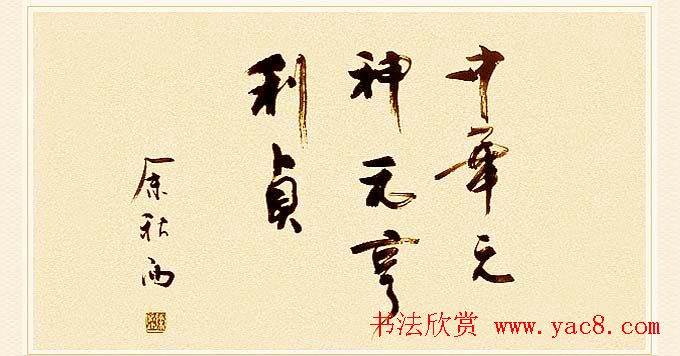 中華元
神元亨
利貞
余秋雨
书法欣赏 www.yac8.com